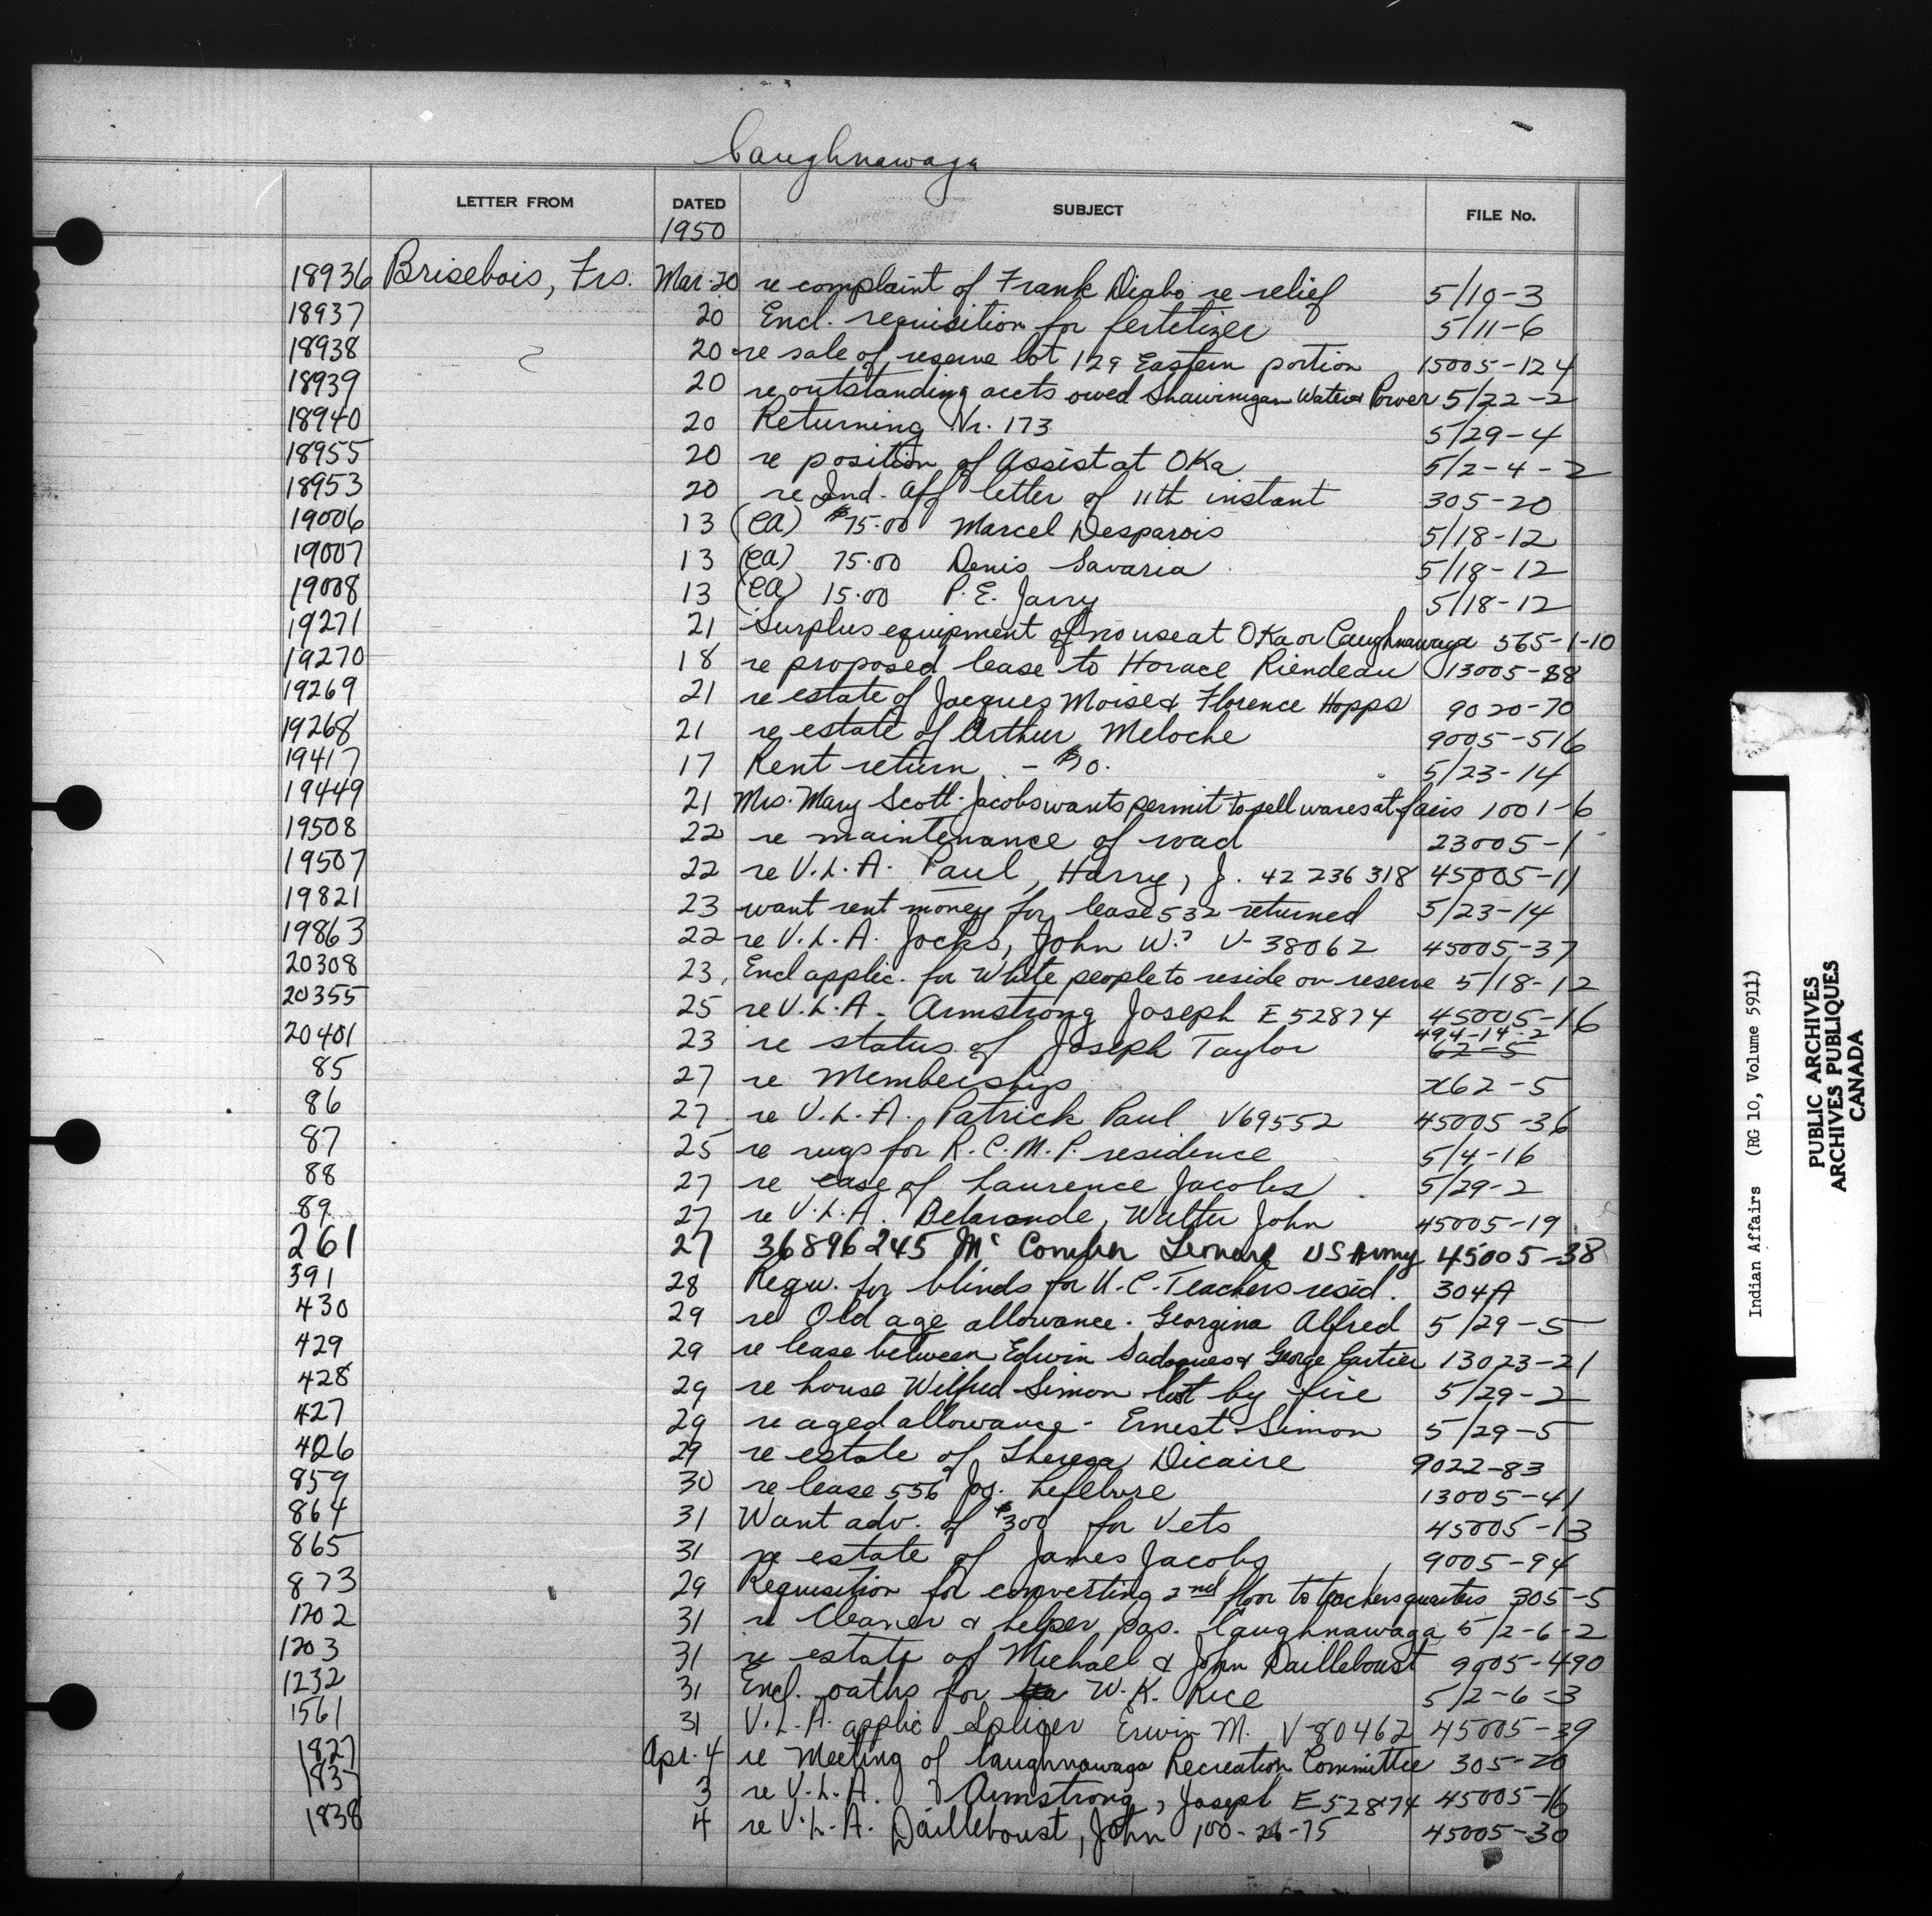 Caughnawaga
LETTER FROM DATED SUBJECT FILE No.
1950
18936 Brisebois, Frs. Mar. 20 re complaint of Frank Diabo re relief 5/10-3
18937 20 Encl. requisition for fertilizer 5/11-6
18938 20 re sale of reserve lot 129 Eastern portion 15005-124
18939 20 re outstanding accts owed Shawinigan Water & Power 5/22-2
18940 20 Returning Vr. 173 5/29-4
18955 20 re position of Assist at OKa 5/2-4-2
18953 20 re Ind. Aff letter of 11th instant 305-20
19006 13 (CA) $75.00 Marcel Desparois 5/18-12
19007 13 (CA) 75.00 Denis Savaria 5/18-12
19008 13 (CA) 15.00 P. E. Jarry 5/18-12
19271 21 Surplus equipment of no use at OKa or Caughnawaga 565-1-10
19270 18 re proposed lease to Horace Riendeau 13005-88
19269 21 re estate of Jacques Moise & Florence Hopps 9020-70
19268 21 re estate of Arthur Meloche 9005-516
19417 17 Rent return - 5/23-14
19449 21 Mrs. Mary Scott Jacobs wants permit to sell wares at fairs 1001-6
19508 22 re maintenance of road 23005-1
19507 22 re V.L.A. Paul, Harry, J. 42 236 318 45005-11
19821 23 want rent money for lease 532 returned 5/23-14
19863 22 re V.L.A. Jocks, John W. V-38062 45005-37
20308 23 Encl applic. for White people to reside on reserve 5/18-12
20355 25 re V.L.A. Armstrong Joseph E52874 45005-16
20401 23 re status of Joseph Taylor 494-14-2 62-5
85 27 re Memberships x62-5
86 27 re V.L.A. Patrick Paul V69552 45005-36
87 25 re rugs for R.C.M.P. residence 5/4-16
88 27 re case of Laurence Jacobs 5/29-2
89 27 re V.L.A. Delaronde, Walter John 45005-19
261 27 36896245 Mc Comber Leonard US Army 45005-38
391 28 Requ. for blinds for U.C. Teachers resid. 304A
430 29 re Old age allowance. Georgina Alfred 5/29-5
429 29 re lease between Edwin Sadoques & George Cartier 13023-21
428 29 re house Wilfred Simon lost by fire 5/29-2
427 29 re aged allowance - Ernest Simon 5/29-5
426 29 re estate of Theresa Dicaire 9022-83
859 30 re lease 556 Jos. Lefebvre 13005-41
864 31 Want adv. of $300 for Vets 45005-13
865 31 re estate of James Jacobs 9005-94
873 29 Requisition for converting 2nd floor to teachers quarters 305-5
1202 31 re Cleaner & helper pos. Caughnawaga 5/2-6-2
1203 31 re estate of Michael & John Dailleboust 9005-490
1232 31 Encl. oaths for W. K. Rice 5/2-6-3
1561 31 V.L.A. applic Splicer Erwin M. V-80462 45005-39
1827 Apr. 4 re Meeting of Caughnawaga Recreation Committee 305-20
1837 3 re V.L.A. Armstrong, Joseph E52874 45005-16
1838 4 re V.L.A. Dailleboust, John 100-26-75 45005-30
Indian Affairs (RG 10, Volume 5911)
PUBLIC ARCHIVES
ARCHIVES PUBLIQUES
CANADA